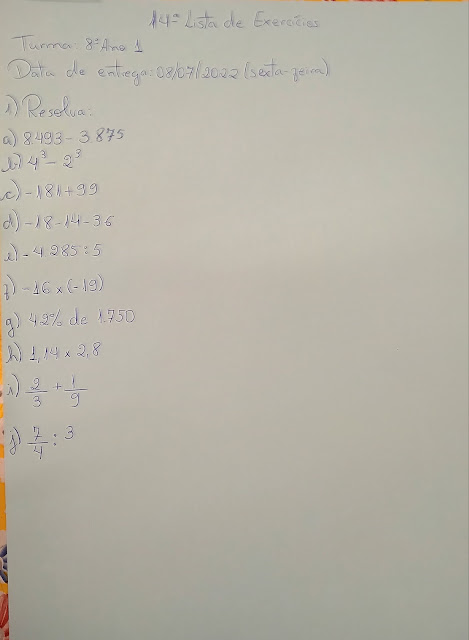 14ª Lista de Exercícios
Turma: 8º Ano 1
Data de entrega: 08/07/2022 (sexta-feira)
1) Resolva:
a) 8.493 - 3.875
b) 4³ - 2³
c) -181 + 99
d) -18 - 14 - 36
e) -4.285 : 5
f) -16 x (-19)
g) 42% de 1.750
h) 1,14 x 2,8
i) 2/3 + 1/9
j) 7/4 : 3